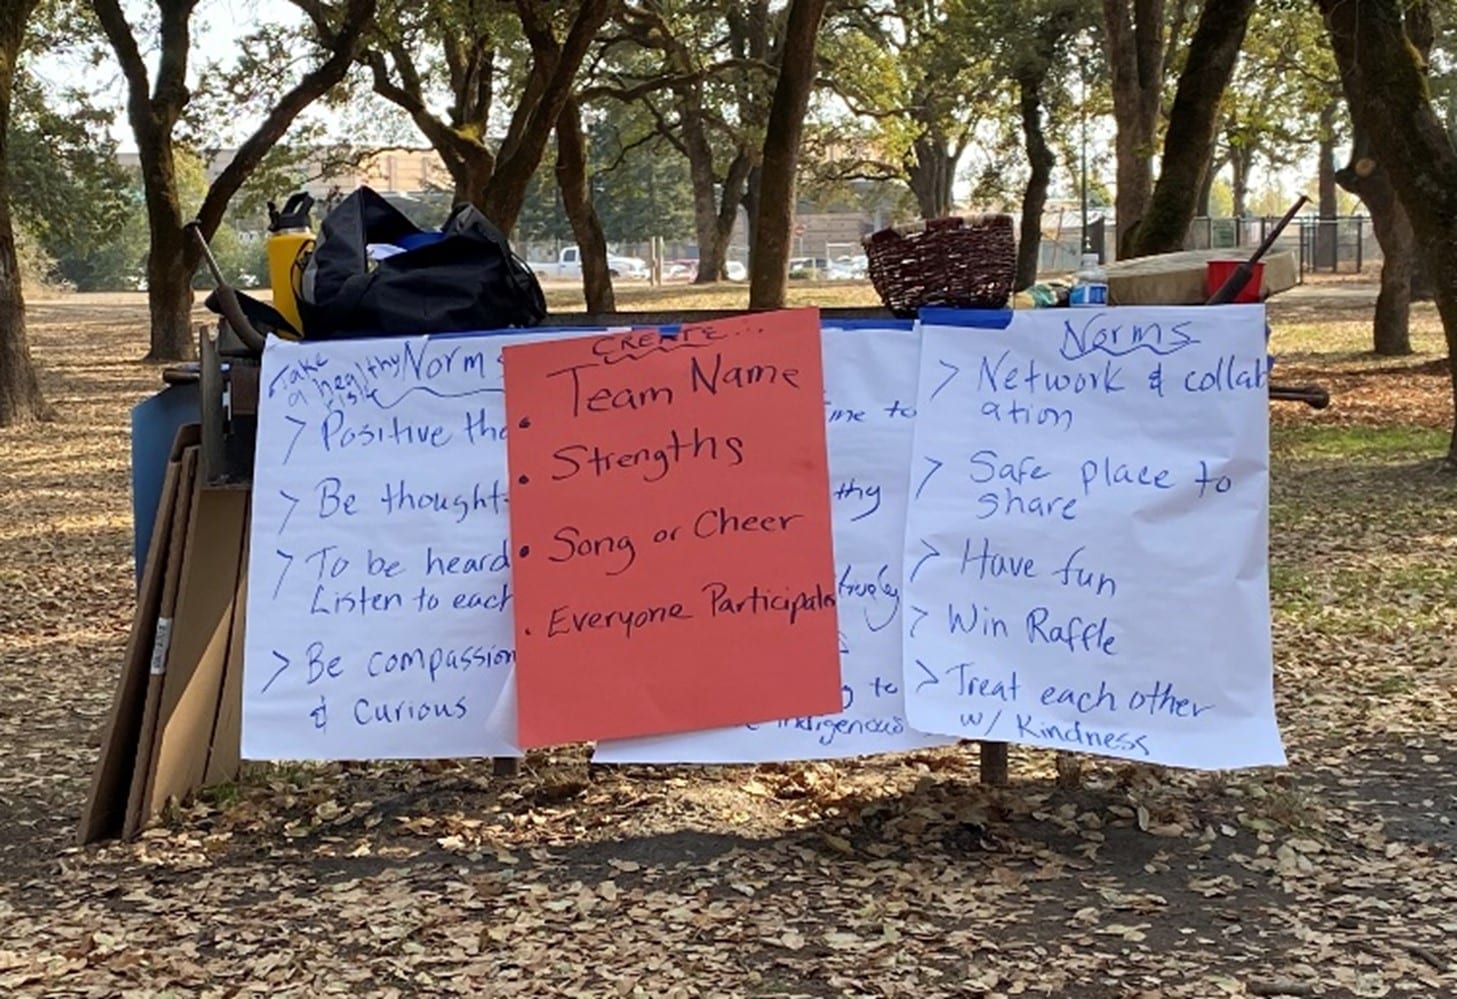 Take
a healthy
risk
Norms
> Positive
> Be
> To be heard
Listen to
> Be
& Curious
CREATE...
• Team Name
• Strengths
• Song or Cheer
• Everyone Participates
to
to
indigenous
Norms
> Network & collab
ation
> Safe place to
share
> Have fun
> Win Raffle
> Treat each other
w/ Kindness